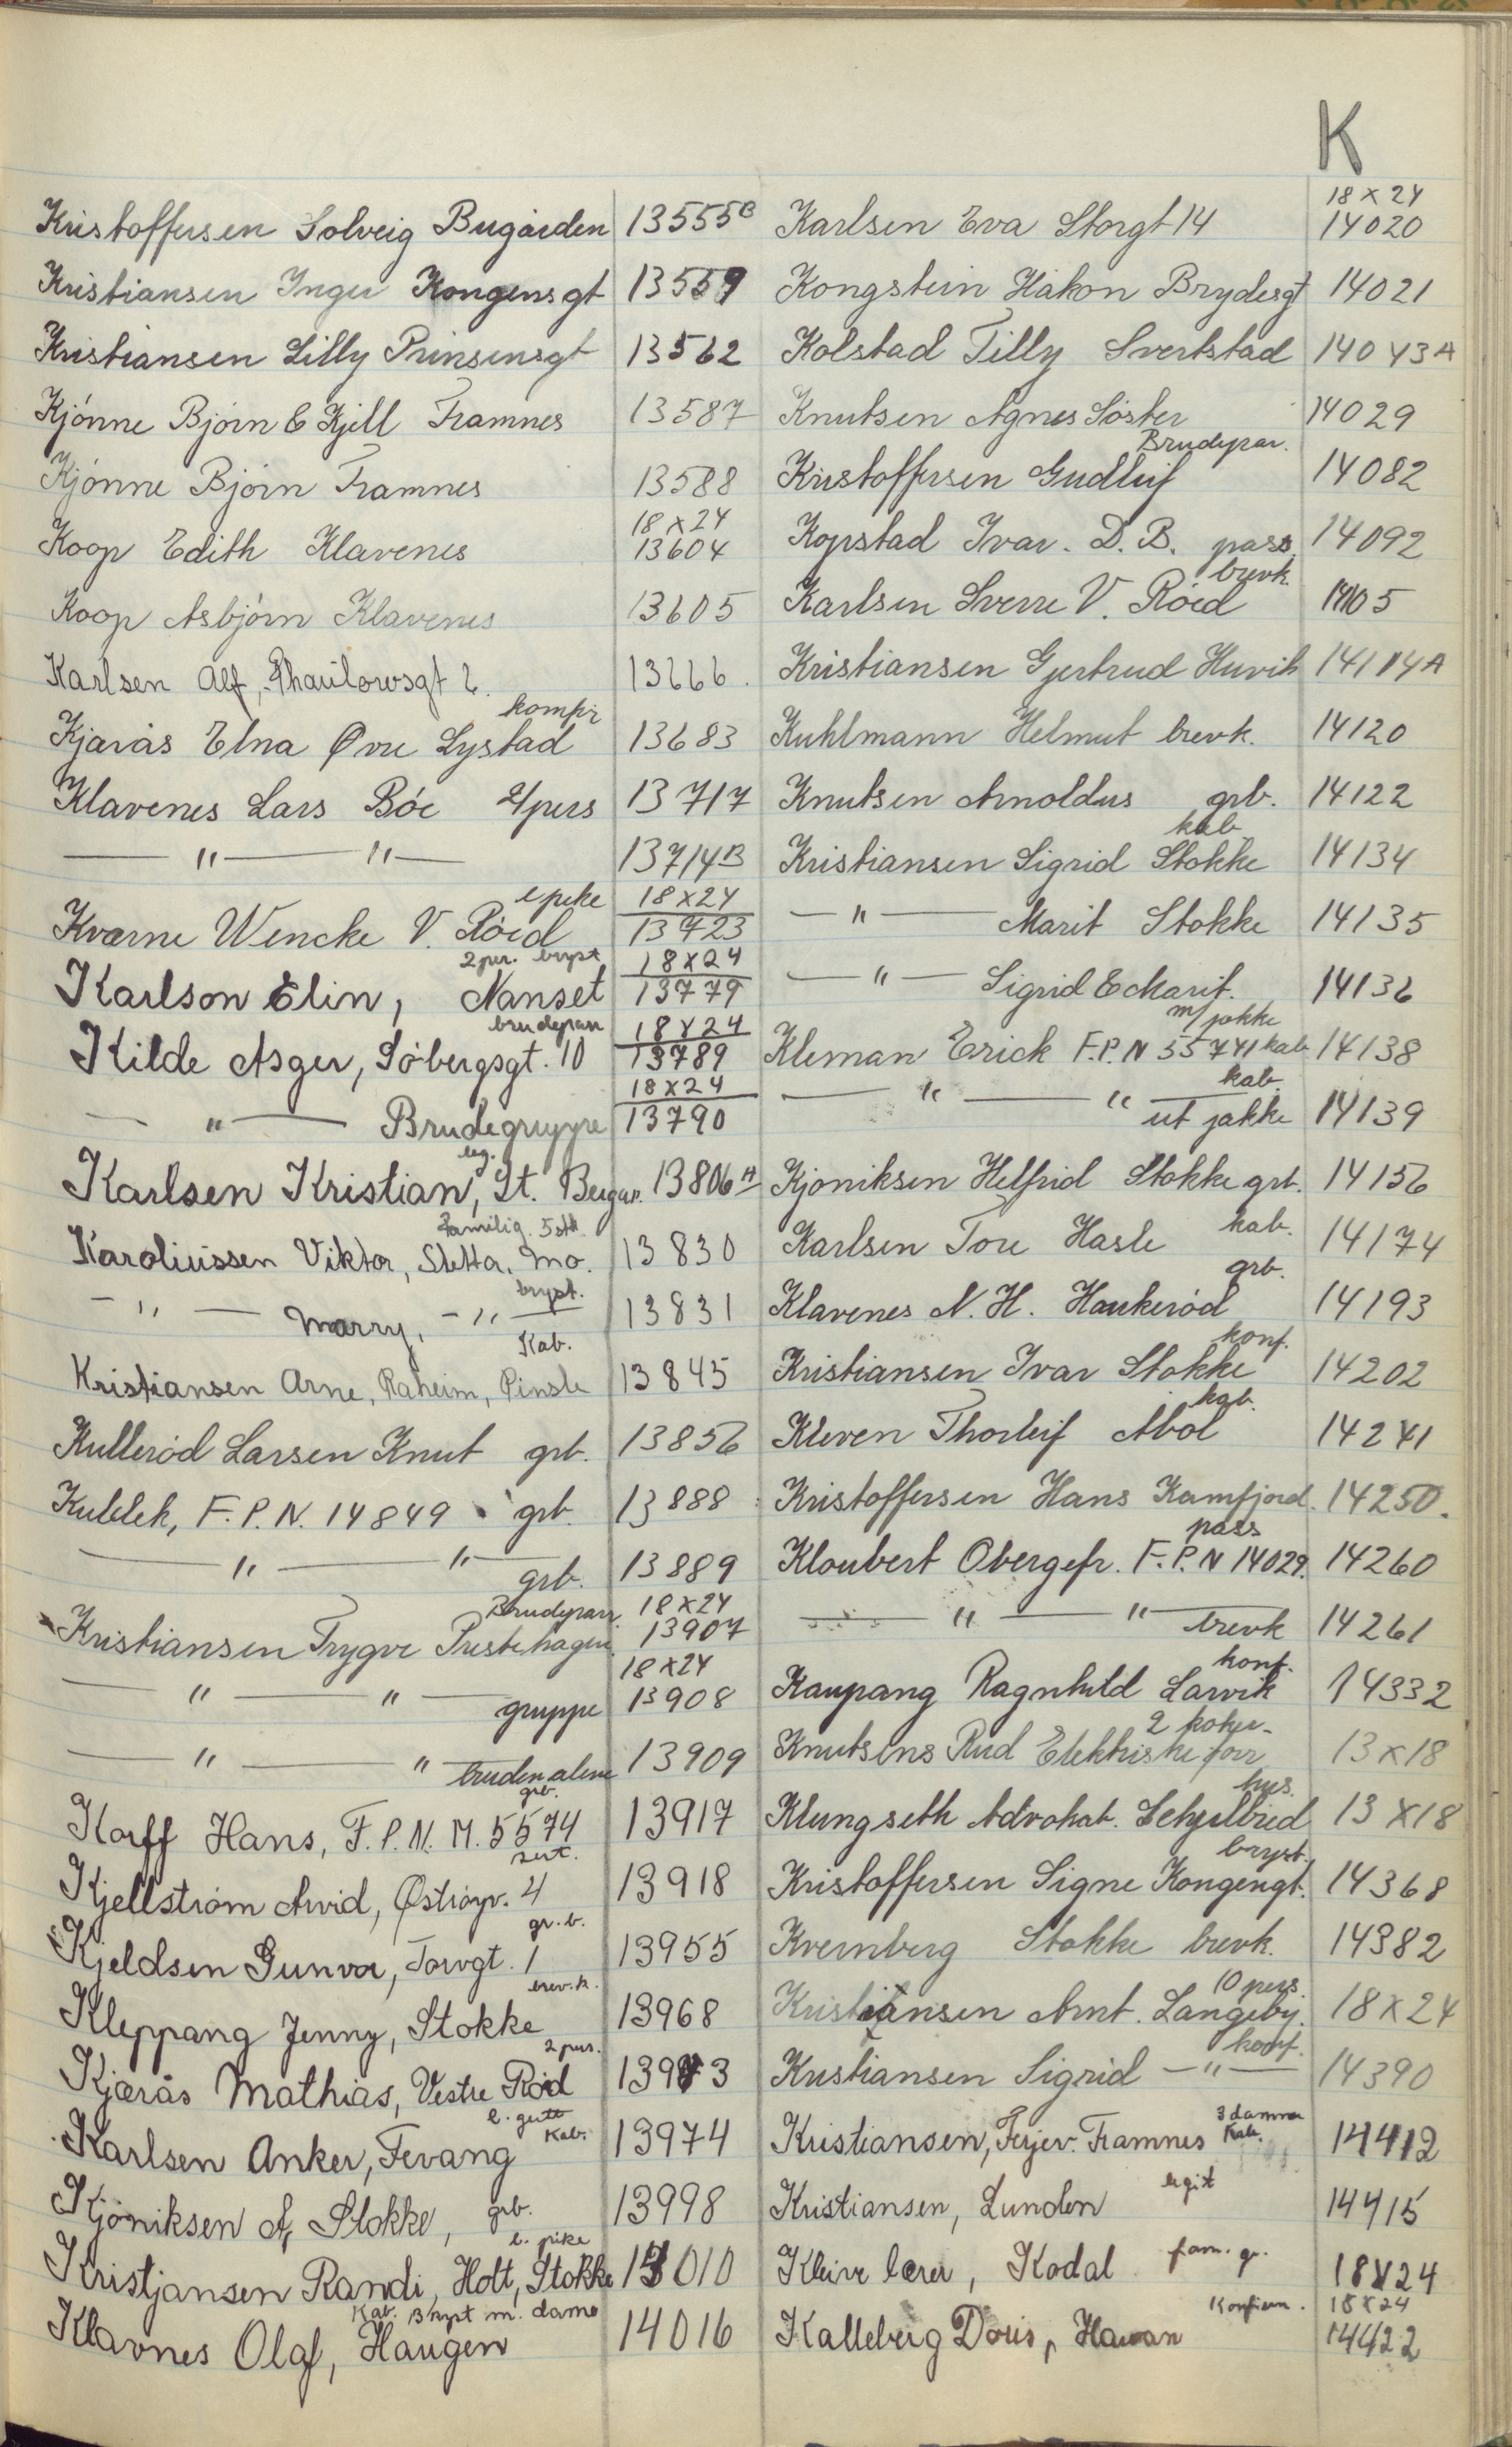 K
Kristoffersen Solveig Bugården 13555B
Kristiansen Inger Kongensgt 13559
Kristiansen Lilly Prinsensgt 13562
Kjönne Björn & Kjell Framnes 13587
Kjönne Björn Framnes 13588
Koop Edith Klavenes 18x24 13604
Koop Asbjörn Klavenes 13605
Karlsen Alf, Thaulowsgt 6. 13666.
Kjærås Elna Øvre Lystad kompr 13683
Klavenes Lars Böe 2/pers 13717
— " — " — 13714B
Kværne Wencke V. Röed l pike 18x24 13723
Karlson Elin, Nanset 2 per. bryst 18x24 13779
Kilde Asger, Söbergsgt. 10 brudepar 18x24 13789
— " — Brudegruppe 18x24 13790
Karlsen Kristian, St. Bergan. leg. 13806A
Karoliussen Viktor, Sletta, Mo. Familie 5 stk. 13830
— " — Marry, — " — bryst. 13831
Kristiansen Arne, Råheim, Pinsle Kab. 13845
Kulleröd Larsen Knut grb. 13856
Kublek, F.P.N. 14849 grb. 13888
— " — " — grb. 13889
Kristiansen Trygve Prestehagen Brudepar 18x24 13907
— " — " — gruppe 18x24 13908
— " — " — bruden alene 13909
Korff Hans, F.P.N. M. 5574 grb. 13917
Kjellström Arvid, Øströyv. 4 sert. 13918
Kjeldsen Gunvor, Torvgt. 1 gr.b. 13955
Kleppang Jenny, Stokke brev.k. 13968
Kjærås Mathias, Vestre Röd 2 pers. 13973
Karlsen Anker, Fevang l. gutt Kab. 13974
Kjöniksen A, Stokke, grb. 13998
Kristjansen Randi, Holt, Stokke l. pike 14010
Klavnes Olaf, Haugen Kab. Bryst m. dame 14016
Karlsen Eva Storgt 14 18x24 14020
Kongstein Håkon Brydesgt 14021
Kolstad Tilly Svertstad 14043A
Knutsen Agnes Söster 14029
Kristoffersen Gudleif Brudepar. 14082
Kopstad Ivar. D.B. pass. 14092
Karlsen Sverre V. Röed brevk. 14105
Kristiansen Gjertrud Huvik 14114A
Kuhlmann Helmut brevk. 14120
Knutsen Arnoldus grb. 14122
Kristiansen Sigrid Stokke kab. 14134
— " — Marit Stokke 14135
— " — Sigrid & Marit. 14136
Kleman Erick F.P.N 55741 kab m/jakke 14138
— " — " — kab. ut jakke 14139
Kjöniksen Helfrid Stokke grb. 14156
Karlsen Tore Hasle kab. 14174
Klavenes N.H. Haukeröd grb. 14193
Kristiansen Ivar Stokke konf. 14202
Kleven Thorleif Åbol kab. 14241
Kristoffersen Hans Kamfjord. 14250.
Kloubert Obergefr. F.P.N 14029. pass 14260
— " — " — brevk 14261
Kaupang Ragnhild Larvik konf. 14332
Knutsens Rud Elektriske forr 2 koker- 13x18
Klungseth Advokat. hus. 13x18
Kristoffersen Signe Kongengt. bryst. 14368
Kvernberg Stokke brevk. 14382
Kristiansen Arnt. Langeby. 10 pers. 18x24
Kristiansen Sigrid — " — konf. 14390
Kristiansen, Ferjev. Framnes 3 damer Kab. 14412
Kristiansen, Lunden legit 14415
Kleive lærer, Kodal fam. gr. 18x24
Kalleberg Doris, Hawan Konfirm. 18x24 14422